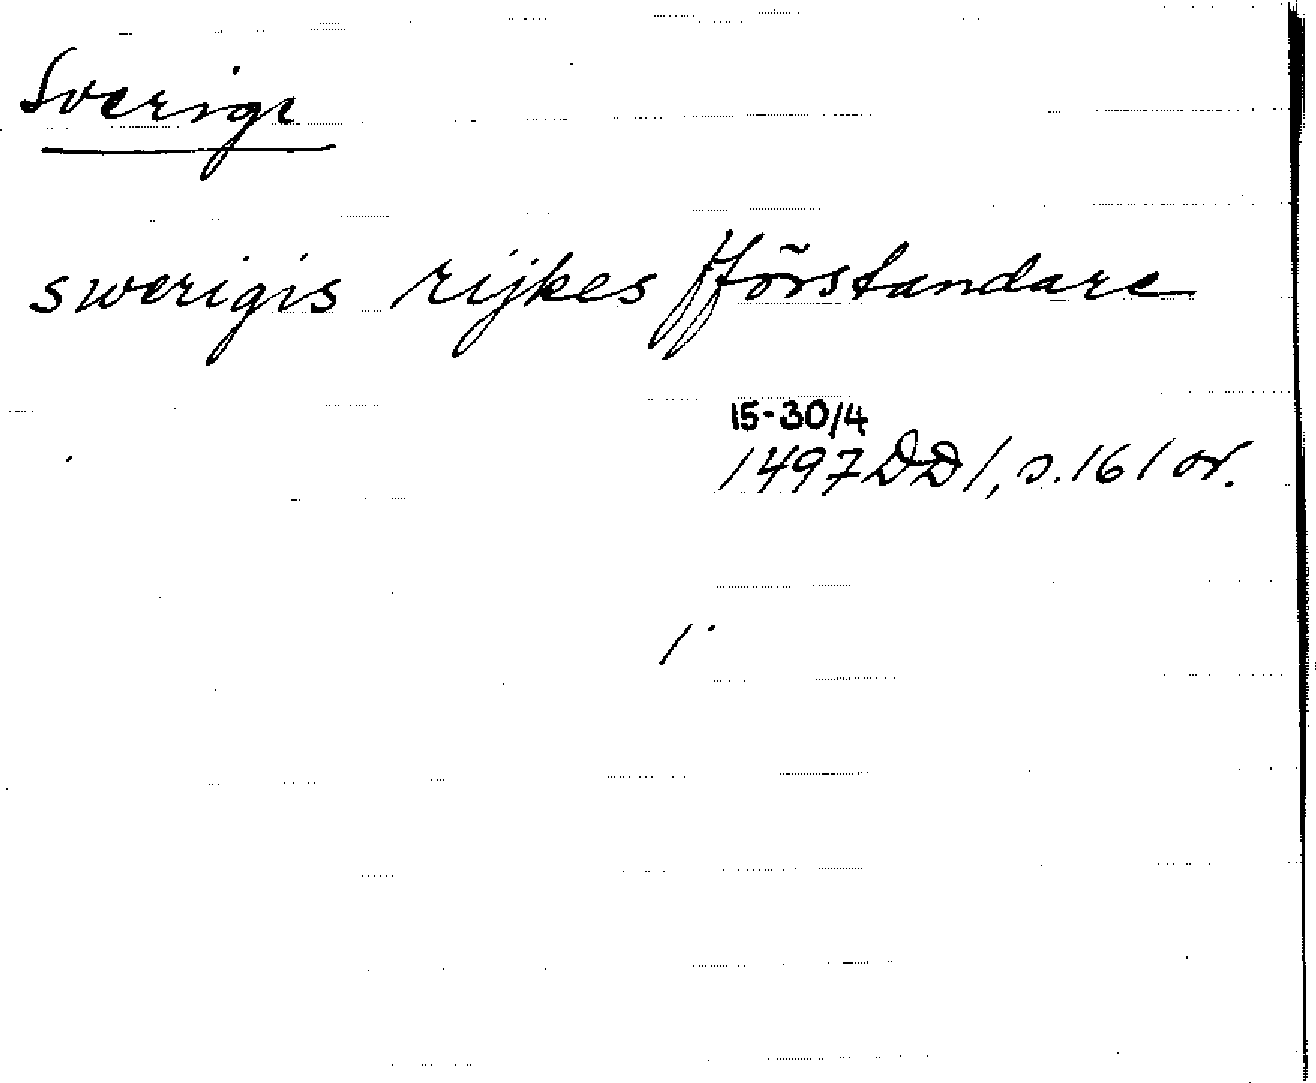 Sverige
swerigis rijkes fförstandare
15-30/4
1497 DD 1, s. 161 or.